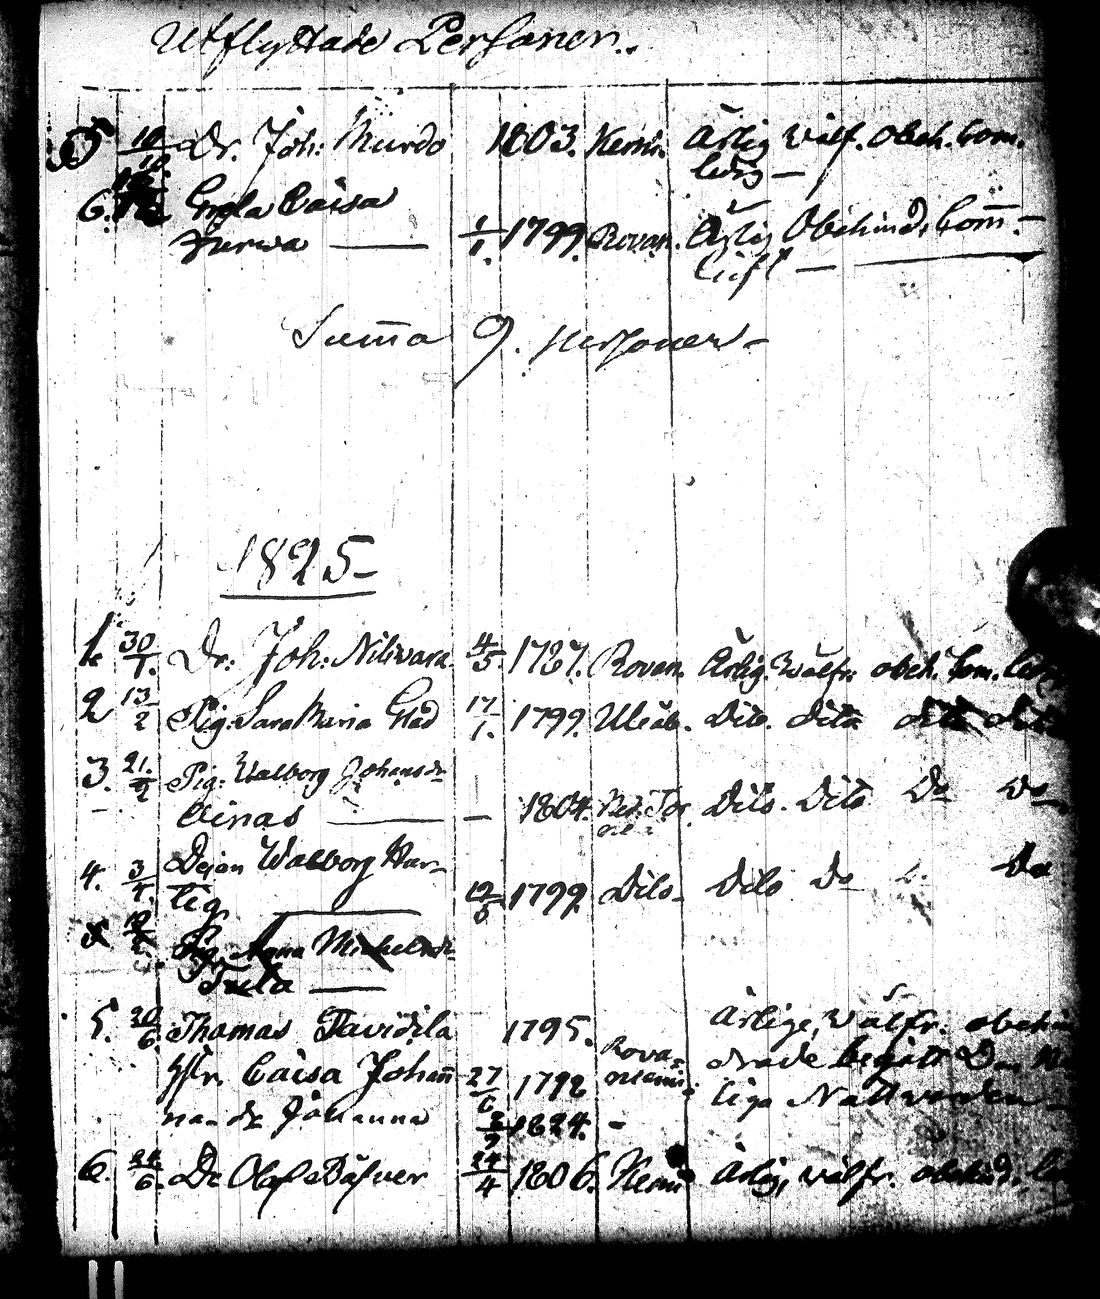 Utflyttade Personer.
5 10/10. Dr. Joh: Murdo 1803. Kemi. Ärlig välf. obeh. Com.
ledig —
6. Greta Caisa
Furwa — 1/1. 1799. Rovan. Ärlig Obehind. Com̄.
lift —
Sum̄a 9. personer —
1825 —
1. 30/1. Dr: Joh: Niliwara. 4/5. 1787. Rovan. Ärlig. wälfr. obeh. Com.
2 13/2 Pig. Sara Maria Grad 17/1. 1799. Uleåb. Dito. dito dito dito
3. 21./2 Pig: Walborg Johansdr
Einas — — 1804. Dito. Dito Do Do
4. 3/4. Dejan Walborg Har-
lig — 12/5 1799. Dito. Dito Do Do
5 Pig. Anna Michelsdr
Tula —
5. 20/6. Thomas Tavidila 1795. Ärlige, wälfr. obehin
Hstr. Caisa Johan̄ 27/6 1792 Rova-niemi. drade begått Den
na. dr Johanna 2/7 1824. — liga Nattvarden —
6. 24/6. Dr Olof Bäfver 24/4 1806. Kemi Ärlig, wälfr. obehind.